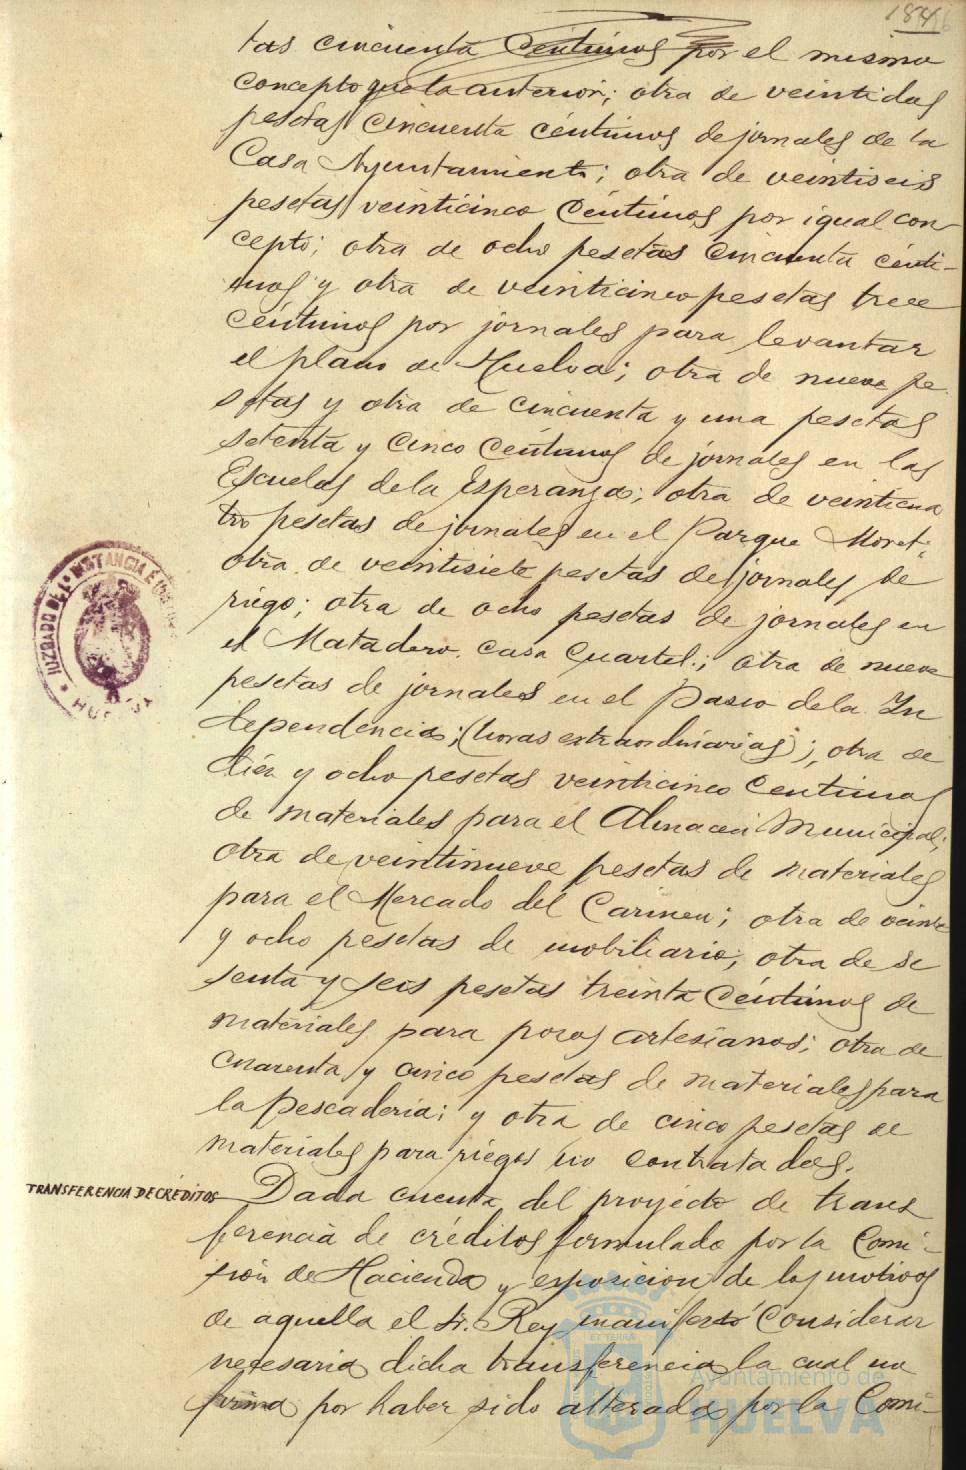 184
tas cincuenta céntimos por el mismo
concepto que la anterior; otra de veintidos
pesetas cincuenta céntimos de jornales de la
Casa Ayuntamiento; otra de veintiseis
pesetas veinticinco céntimos por igual con-
cepto; otra de ocho pesetas cincuenta cénti-
mos y otra de veinticinco pesetas trece
céntimos por jornales para levantar
el plano de Huelva; otra de nueve pe
setas y otra de cincuenta y una pesetas
setenta y cinco céntimos de jornales en las
Escuelas de la Esperanza; otra de veinticua
tro pesetas de jornales en el Parque Moret;
otra de veintisiete pesetas de jornales de
riego; otra de ocho pesetas de jornales en
el Matadero. casa Cuartel.; otra de nueve
pesetas de jornales en el Paseo de la In
dependencia; (horas extraordinarias); otra de
diez y ocho pesetas veinticinco centimos
de materiales para el Almacen Municipal;
otra de veintinueve pesetas de materiales
para el Mercado del Carmen; otra de veinte
y ocho pesetas de mobiliario; otra de se
senta y seis pesetas treinta céntimos de
materiales para pozos artesianos; otra de
cuarenta y cinco pesetas de materiales para
la Pescadería; y otra de cinco pesetas de
materiales para riegos no contratados.
TRANSFERENCIA DE CRÉDITOS Dada cuenta del proyecto de trans
ferencia de créditos formulado por la Comi-
sión de Hacienda y exposicion de los motivos
de aquella el Sr. Rey manifestó considerar
necesaria dicha transferencia la cual no
firma por haber sido alterada por la Comi-
JUZGADO DE 1ª INSTANCIA É
HUELVA
Ayuntamiento de
HUELVA